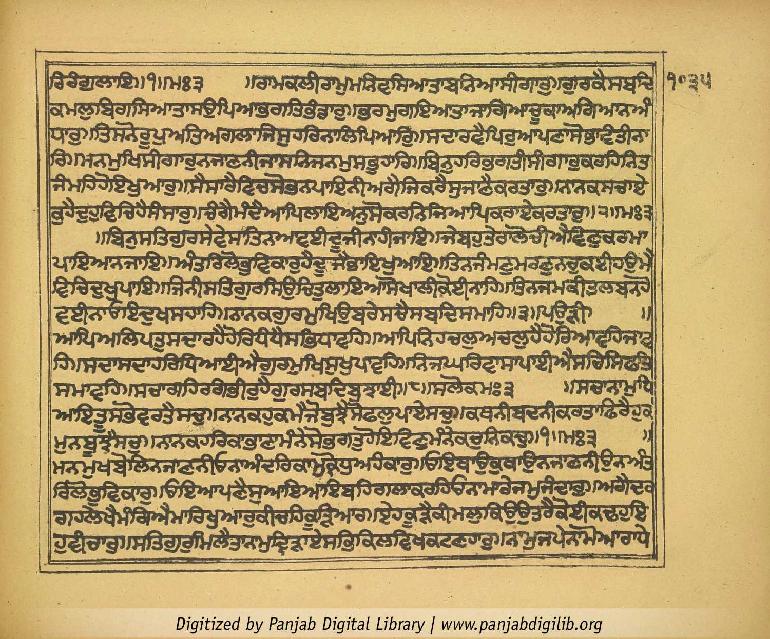 ਰਿਰੰਗੁਲਾਇ॥੧॥ਮਃ੩ ॥ਰਾਮਕਲੀਰਾਮੁਮਨਿਵਸਿਆਤਾਬਨਿਆਸੀਗਾਰੁ॥ਗੁਰਕੈਸਬਦਿ ੧੦੩੫
ਕਮਲੁਬਿਗਸਿਆਤਾਸਉਪਿਆਭਗਤਿਭੰਡਾਰੁ॥ਭਰਮੁਗਇਆਤਾਜਾਗਿਆਚੂਕਾਅਗਿਆਨਅੰ
ਧਾਰੁ॥ਤਿਸਨੋਰੂਪੁਅਤਿਅਗਲਾਜਿਸੁਹਰਿਨਾਲਿਪਿਆਰੁ॥ਸਦਾਰਵੈਪਿਰੁਆਪਣਾਸੋਭਾਵੰਤੀਨਾ
ਰਿ॥ਮਨਮੁਖਿਸੀਗਾਰੁਨਜਾਣਨੀਜਾਸਨਿਜਨਮੁਸਭੁਹਾਰਿ॥ਬਿਨੁਹਰਿਭਗਤੀਸੀਗਾਰੁਕਰਹਿਨਿਤ
ਜੰਮਹਿਹੋਇਖੁਆਰੁ॥ਸੈਸਾਰੈਵਿਚਿਸੋਭਨਪਾਇਨੀਅਗੈਜਿਕਰੇਸੁਜਾਣੈਕਰਤਾਰੁ॥ਨਾਨਕਸਚਾਏ
ਕੁਹੈਦੁਹੁਵਿਚਿਹੈਸੰਸਾਰੁ॥ਚੰਗੈਮੰਦੈਆਪਿਲਾਇਅਨੁਸੋਕਰਨਿਜਿਆਪਿਕਰਾਏਕਰਤਾਰੁ॥੨॥ਮਃ੩
॥ਬਿਨੁਸਤਿਗੁਰਸੇਵੇਸਾਂਤਿਨਆਵਈਦੂਜੀਨਾਹੀਜਾਇ॥ਜੇਬਹੁਤੇਰਾਲੋਚੀਐਵਿਣੁਕਰਮਾ
ਪਾਇਆਨਜਾਇ॥ਅੰਤਰਿਲੋਭੁਵਿਕਾਰੁਹੈਦੂਜੈਭਾਇਖੁਆਇ॥ਤਿਨਜੰਮਣੁਮਰਣੁਨਚੁਕਈਹਉਮੈ
ਵਿਚਿਦੁਖੁਪਾਇ॥ਜਿਨੀਸਤਿਗੁਰਸਿਉਚਿਤੁਲਾਇਆਸੋਖਾਲੀਕੋਈਨਾਹਿ॥ਤਿਨਜਮਕੀਤਲਬਨਹੋ
ਵਈਨਾਓਇਦੁਖਸਹਾਹਿ॥ਨਾਨਕਗੁਰਮੁਖਿਉਬਰੇਸਚੈਸਬਦਿਸਮਾਹਿ॥੩॥ਪਉੜੀ ॥
ਆਪਿਅਲਿਪਤੁਸਦਾਰਹੈਹੋਰਿਧੰਧੈਸਭਿਧਾਵਹਿ॥ਆਪਿਨਿਹਚਲੁਅਚਲੁਹੈਹੋਰਿਆਵਹਿਜਾਵ
ਹਿ॥ਸਦਾਸਦਾਹਰਿਧਿਆਈਐਗੁਰਮੁਖਿਸੁਖੁਪਾਵਹਿ॥ਨਿਜਘਰਿਵਾਸਾਪਾਈਐਸਚਿਸਿਫਤਿ
ਸਮਾਵਹਿ॥ਸਚਾਗਹਿਰਗੰਭੀਰੁਹੈਗੁਰਸਬਦਿਬੁਝਾਈ॥੮॥ਸਲੋਕਮਃ੩ ॥ਸਚਾਨਾਮੁਧਿ
ਆਇਤੂਸਭੋਵਰਤੈਸਚੁ॥ਨਾਨਕਹੁਕਮੈਜੋਬੁਝੈਸੋਫਲੁਪਾਏਸਚੁ॥ਕਥਨੀਬਦਨੀਕਰਤਾਫਿਰੈਹੁਕ
ਮੁਨਬੂਝੈਸਚੁ॥ਨਾਨਕਹਰਿਕਾਭਾਣਾਮੰਨੇਸੋਭਗਤੁਹੋਇਵਿਣੁਮੰਨੇਕਚੁਨਿਕਚੁ॥੧॥ਮਃ੩ ॥
ਮਨਮੁਖਬੋਲਿਨਜਾਣਨੀਓਨਾਅੰਦਰਿਕਾਮੁਕ੍ਰੋਧੁਅਹੰਕਾਰੁ॥ਓਇਥਾਉਕੁਥਾਉਨਜਾਣਨੀਉਨਅੰਤ
ਰਿਲੋਭੁਵਿਕਾਰੁ॥ਓਇਆਪਣੈਸੁਆਇਆਇਬਹਿਗਲਾਕਰਹਿਓਨਾਮਾਰੇਜਮੁਜੰਦਾਰੁ॥ਅਗੈਦਰ
ਗਹਲੇਖੈਮੰਗਿਐਮਾਰਿਖੁਆਰੁਕੀਚਹਿਕੂੜਿਆਰ॥ਏਹਕੂੜੈਕੀਮਲੁਕਿਉਉਤਰੈਕੋਈਕਢਹੁਇ
ਹੁਵੀਚਾਰੁ॥ਸਤਿਗੁਰੁਮਿਲੈਤਾਨਾਮੁਦਿੜਾਏਸਭਿਕਿਲਵਿਖਕਟਣਹਾਰੁ॥ਨਾਮੁਜਪੇਨਾਮੋਆਰਾਧੇ
Digitized by Panjab Digital Library | www.panjabdigilib.org